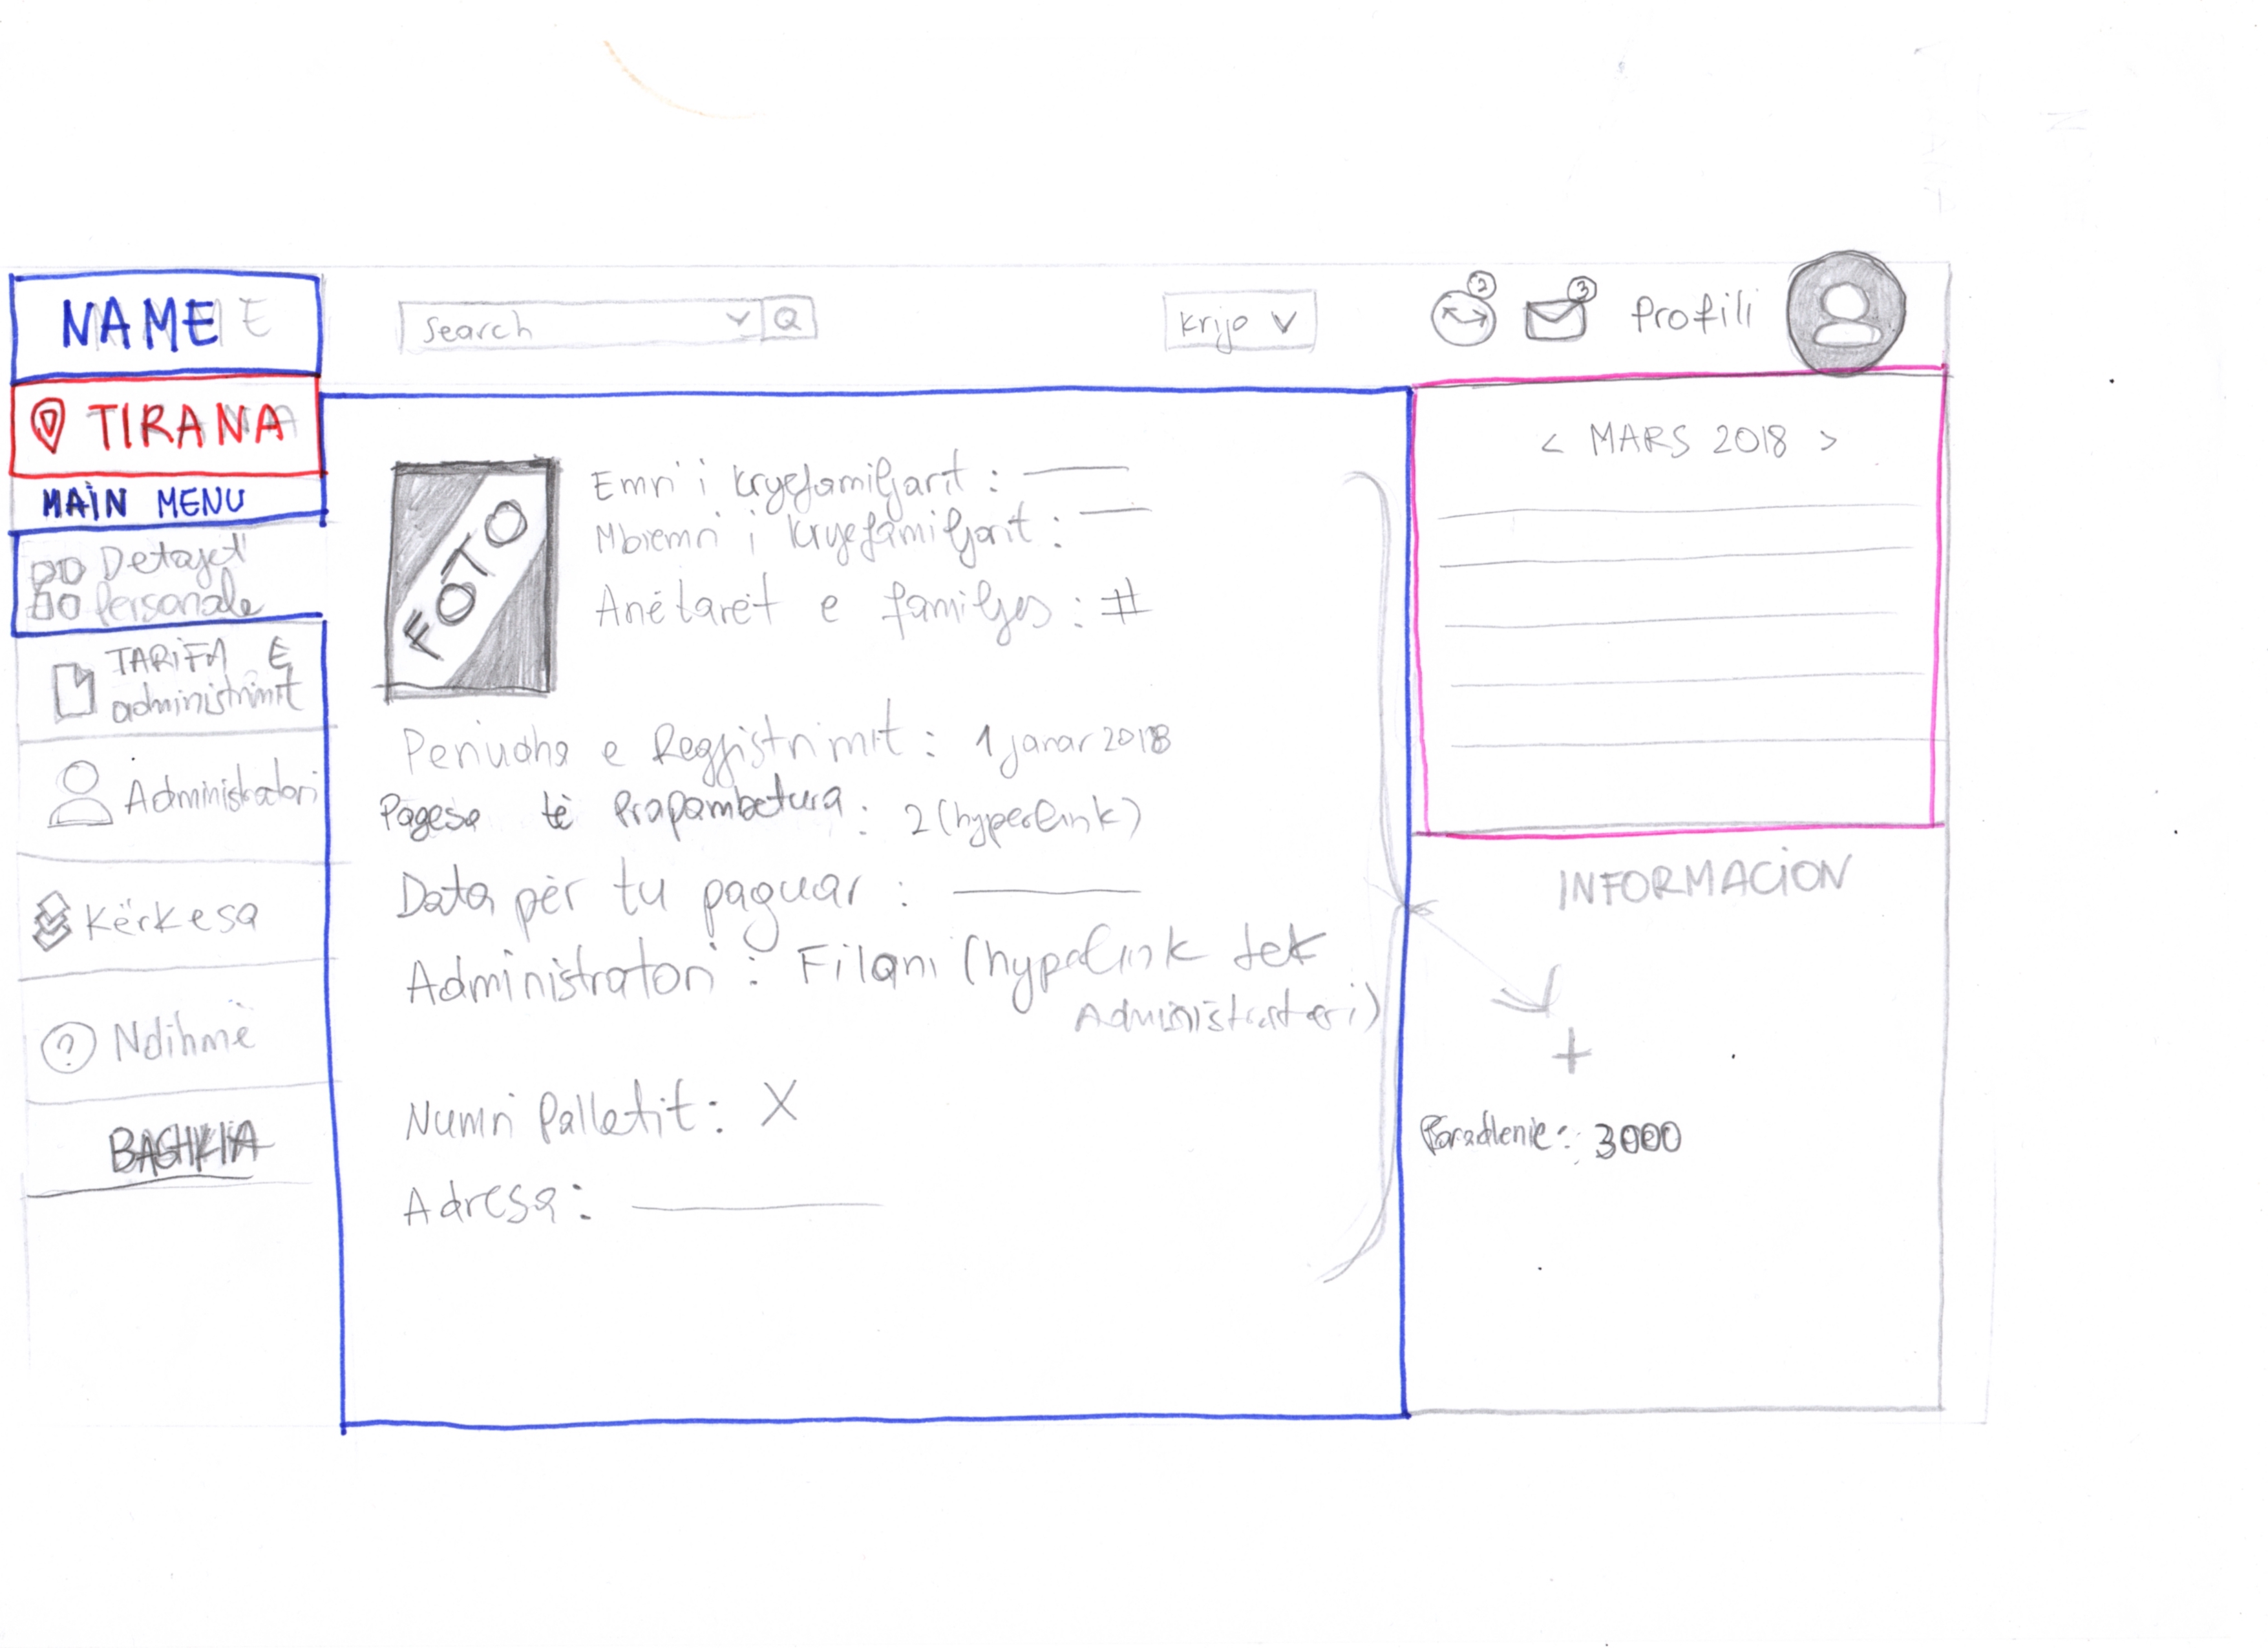 NAME
Search
Krijo
2
3
Profili
TIRANA
MAIN MENU
Detajet
Personale
TARIFA E
administrimit
Administratori
Kërkesa
? Ndihmë
BASHKIA
FOTO
Emri i kryefamiljarit :
Mbiemri i kryefamiljarit :
Anëtarët e familjes : #
Periudha e Regjistrimit : 1 janar 2018
Pagesa të Prapambetura : 2 (hyperlink)
Data për tu paguar :
Administratori : Filani (hyperlink tek
Administratori)
Numri Pallatit : X
Adresa :
< MARS 2018 >
INFORMACION
+
3000